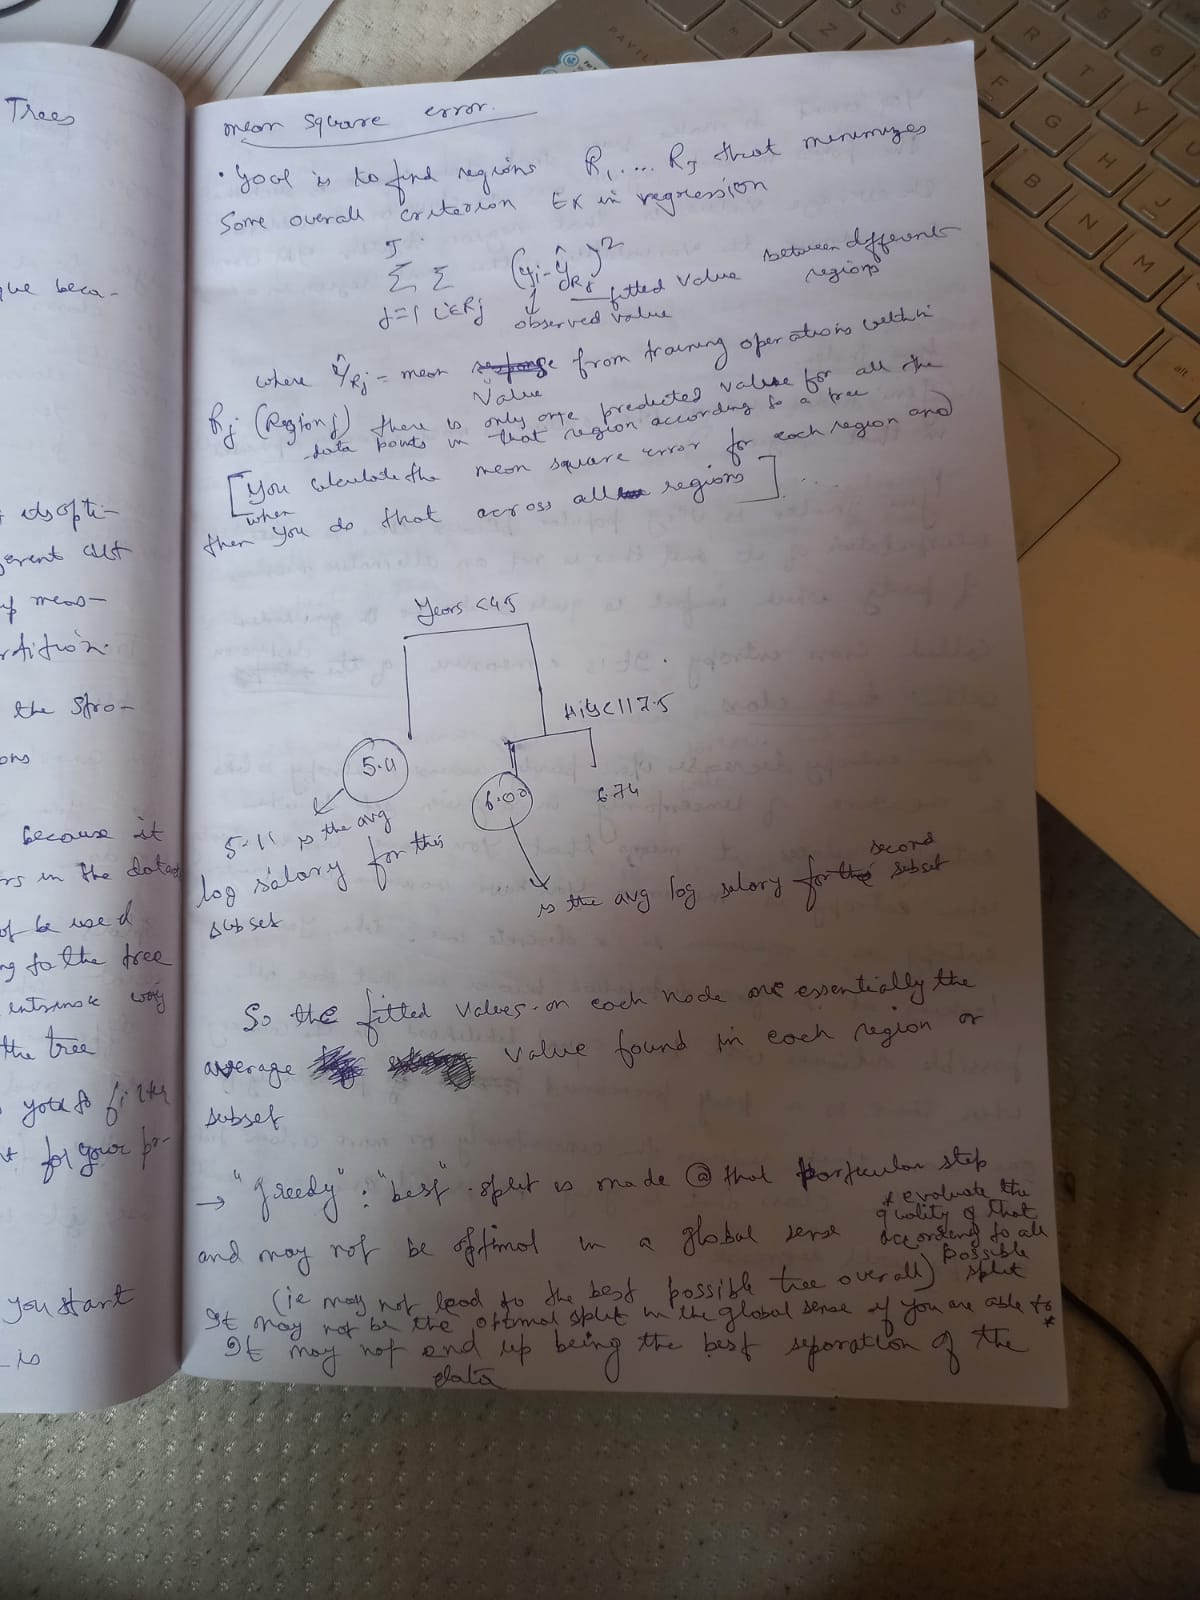 Trees
que beca-
its opti-
erent cut
up meas-
rtition.
the spro-
ons
because it
rs in the datas
of be used
ng to the tree
entrinsic way
the tree
for your pr-
you start
is
mean square error.
• Goal is to find regions R1.... RJ that minimizes
Some overall criterion Ex in regression
J
Σ Σ (yi - ŷRj)2
j=1 i∈Rj
fitted value between different
regions
observed value
where ŷRj = mean from training operations within
Value
Rj (Region j) there is only one predicted value for all the
data points in that region according to a tree
[You calculate the mean square error for each region and
when
then you do that across all regions] ...
Years <4.5
Hits<117.5
5.11
6.00
6.74
5.11 is the avg
log salary for this
subset
is the avg log salary for second
subset
So the fitted values on each node are essentially the
average value found in each region or
subset
→ "Greedy" : "best" split is made @ that particular step
and may not be optimal in a global sense
* evaluate the
quality of that
according to all
possible
split
(ie may not lead to the best possible tree overall)
It may not be the optimal split in the global sense if you are able to *
It may not end up being the best separation of the
data
PAVIL
S
Z
R
F
T
G
Y
V
H
B
U
J
N
M
5
6
alt